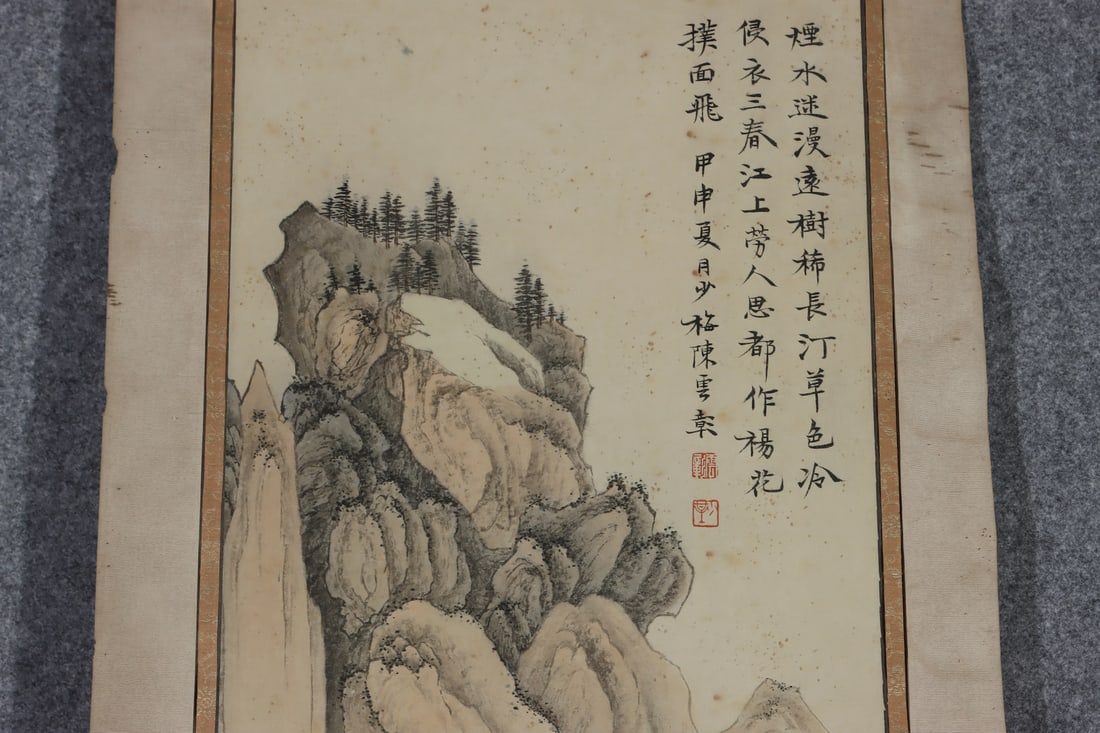 煙水迷漫遠樹稀長汀草色冷
侵衣三春江上勞人思都作楊花
撲面飛
甲申夏月少梅陳雲彰